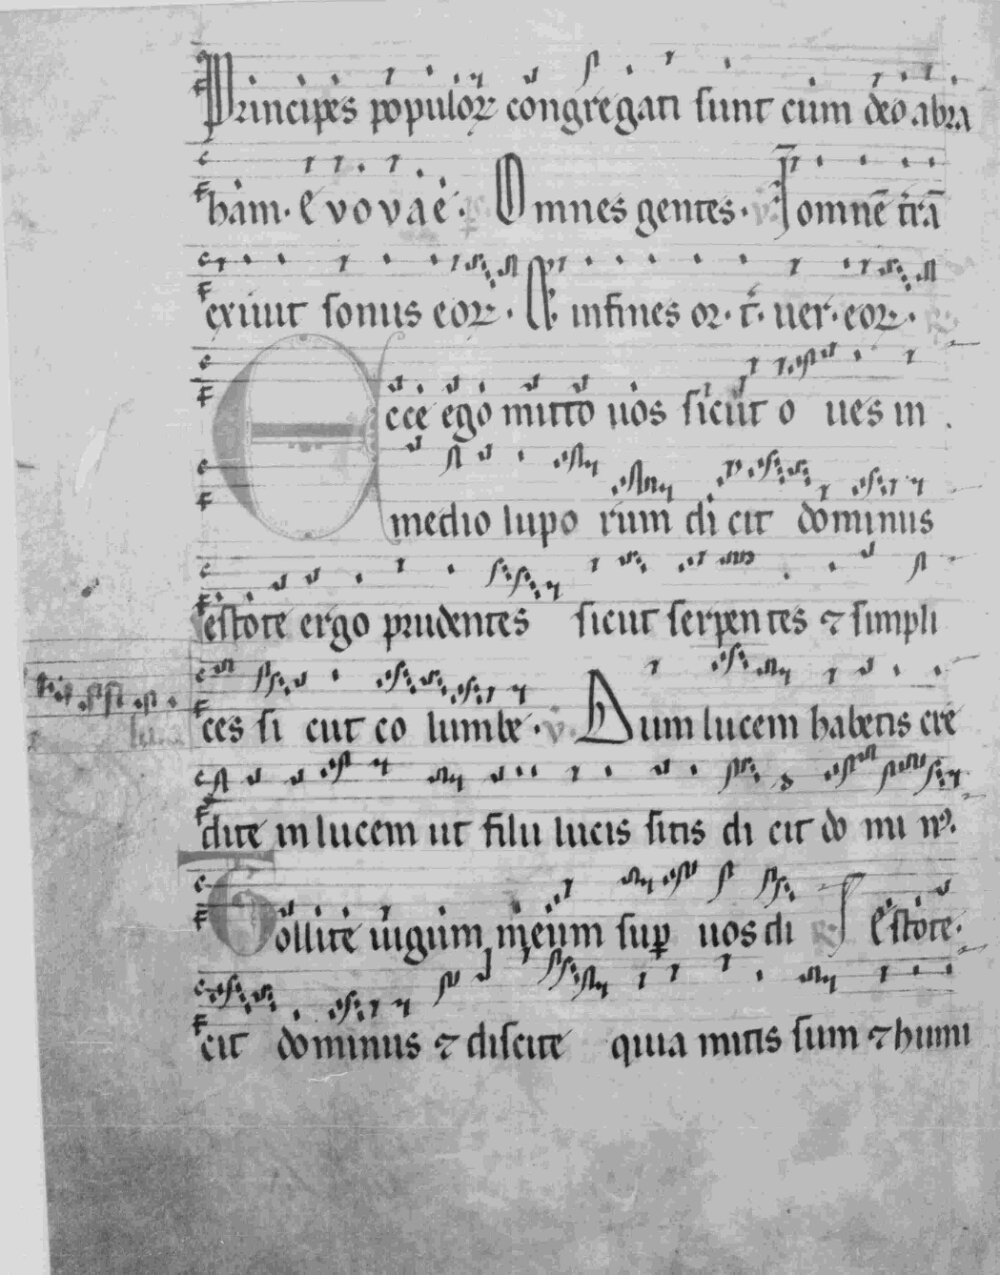 Principes populoꝝ congregati sunt cum deo abra
ham. E v o v a e. Omnes gentes. ℣. In omnē t̄rā
exiuit sonus eoꝝ. ℣. in fines or. t̄. uer. eoꝝ. ℟.
Ecce ego mitto uos sicut o ues in
medio lupo rum di cit dominus
estote ergo prudentes sicut serpentes ⁊ simpli
ces si cut co lumbe. ℣. Dum lucem habetis cre
dite in lucem ut filii lucis sitis di cit do mi nꝰ.
Tollite iugum meum suꝑ uos di ℟. Estote.
cit dominus ⁊ discite quia mitis sum ⁊ humi